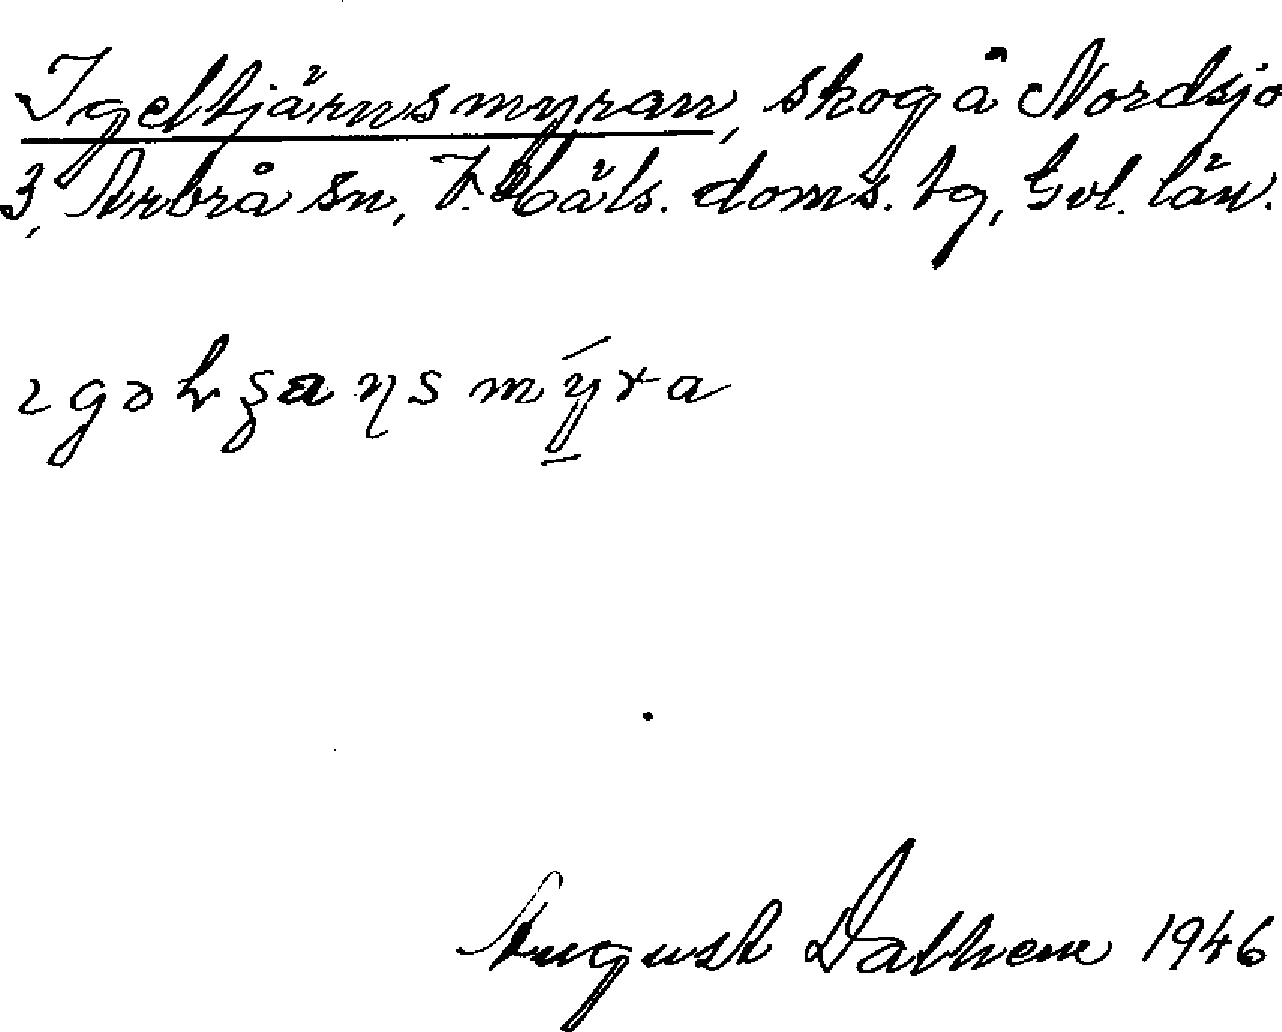 Igeltjärnsmyran, skog å Nordsjö
3, Arbrå sn, V. Häls. doms. tg, Gvl. län.
August Dathem 1946